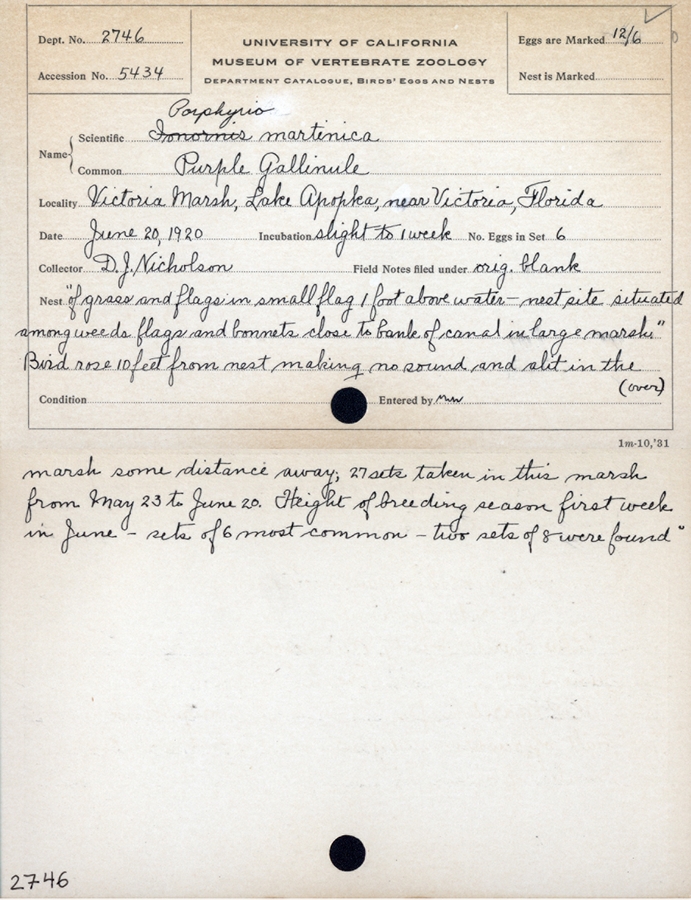 Dept. No. 2746
Accession No. 5434
UNIVERSITY OF CALIFORNIA
MUSEUM OF VERTEBRATE ZOOLOGY
DEPARTMENT CATALOGUE, BIRDS' EGGS AND NESTS
Eggs are Marked 12/6
Nest is Marked
Porphyrio
Name Scientific Ionornis martinica
Common Purple Gallinule
Locality Victoria Marsh, Lake Apopka, near Victoria, Florida
Date June 20, 1920 Incubation slight to 1 week No. Eggs in Set 6
Collector D. J. Nicholson Field Notes filed under orig. blank
Nest "of grass and flags in small flag 1 foot above water – nest site situated
among weeds flags and bonnets close to bank of canal in large marsh."
Bird rose 10 feet from nest making no sound and alit in the
(over)
Condition Entered by
1m-10,'31
marsh some distance away; 27 sets taken in this marsh
from May 23 to June 20. Height of breeding season first week
in June – sets of 6 most common – two sets of 8 were found"
2746